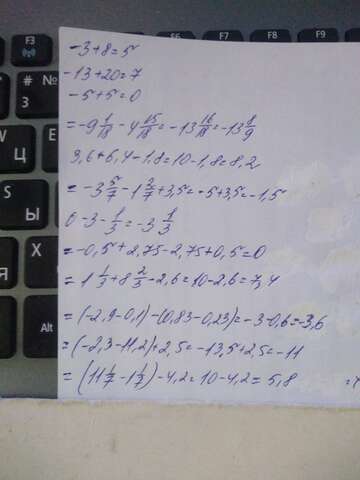 F3
№
3
#
Alt
Я
-3+8=5
-13+20=7
-5+5=0
=-9 1/18 - 4 15/18 = -13 16/18 = -13 8/9
3,6+6,4-1,8=10-1,8=8,2
=-3 5/7 - 1 2/7 + 3,5= -5+3,5=-1,5
0-3-1/3=-3 1/3
=-0,5+2,75-2,75+0,5=0
=1 1/3+8 2/3-2,6=10-2,6=7,4
=(-2,9-0,1)-(0,83-0,23)=-3-0,6=-3,6
=(-2,3-11,2)+2,5=-13,5+2,5=-11
=(11 1/7-1 1/7)-4,2=10-4,2=5,8